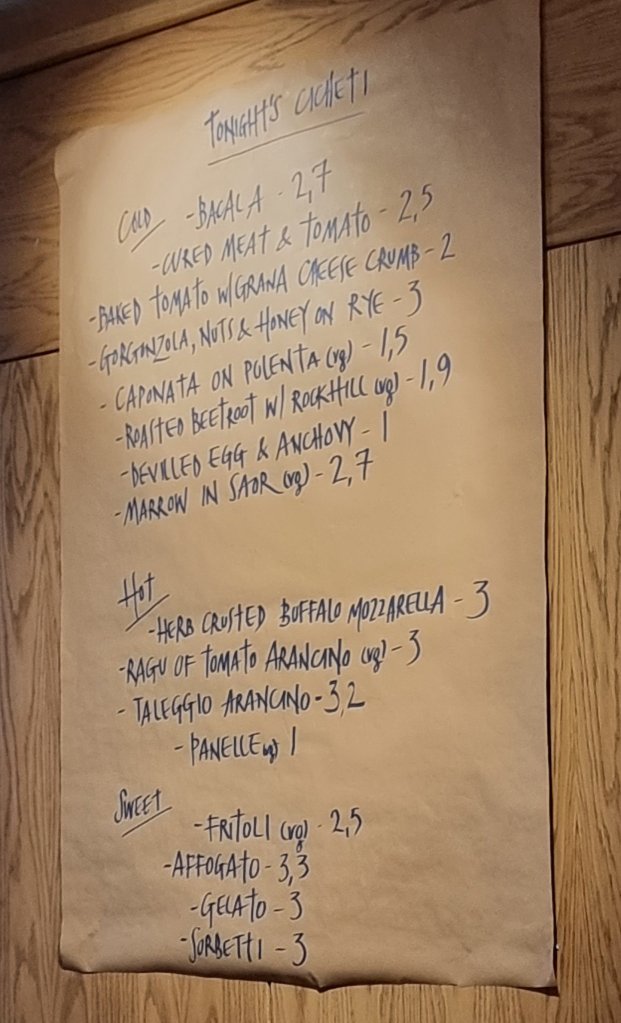 TONIGHT'S CICHETI
COLD
- BACALA - 2,7
- CURED MEAT & TOMATO - 2,5
- BAKED TOMATO W/GRANA CHEESE CRUMB - 2
- GORGONZOLA, NUTS & HONEY ON RYE - 3
- CAPONATA ON POLENTA (vg) - 1,5
- ROASTED BEETROOT W/ ROCKHILL (vg) - 1,9
- DEVILLED EGG & ANCHOVY - 1
- MARROW IN SAOR (vg) - 2,7
HOT
- HERB CRUSTED BUFFALO MOZZARELLA - 3
- RAGU OF TOMATO ARANCINO (vg) - 3
- TALEGGIO ARANCINO - 3,2
- PANELLE (vg) 1
SWEET
- FRITOLI (vg) - 2,5
- AFFOGATO - 3,3
- GELATO - 3
- SORBETTI - 3